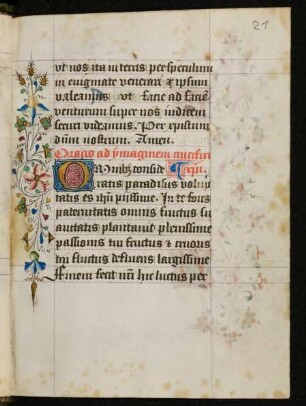 21
ut nos ita in terris per speculum
in enigmate venerari et ipsum
valeamus ut facie ad facie
venturum super nos iudicem
secure videamus. Per xpistum
dnm nostrum. Amen.
Oratio ad ymaginem crucifixi
Omnibus conside
ratis paradisus volup
tatis es ihu piissime. In te fons
patenitatis omnis fructus su
auitatis plantauit plenissime
passionis tui fructus et cruoris
tui fluctus defluens largissime
Finem fecit hic luctus per